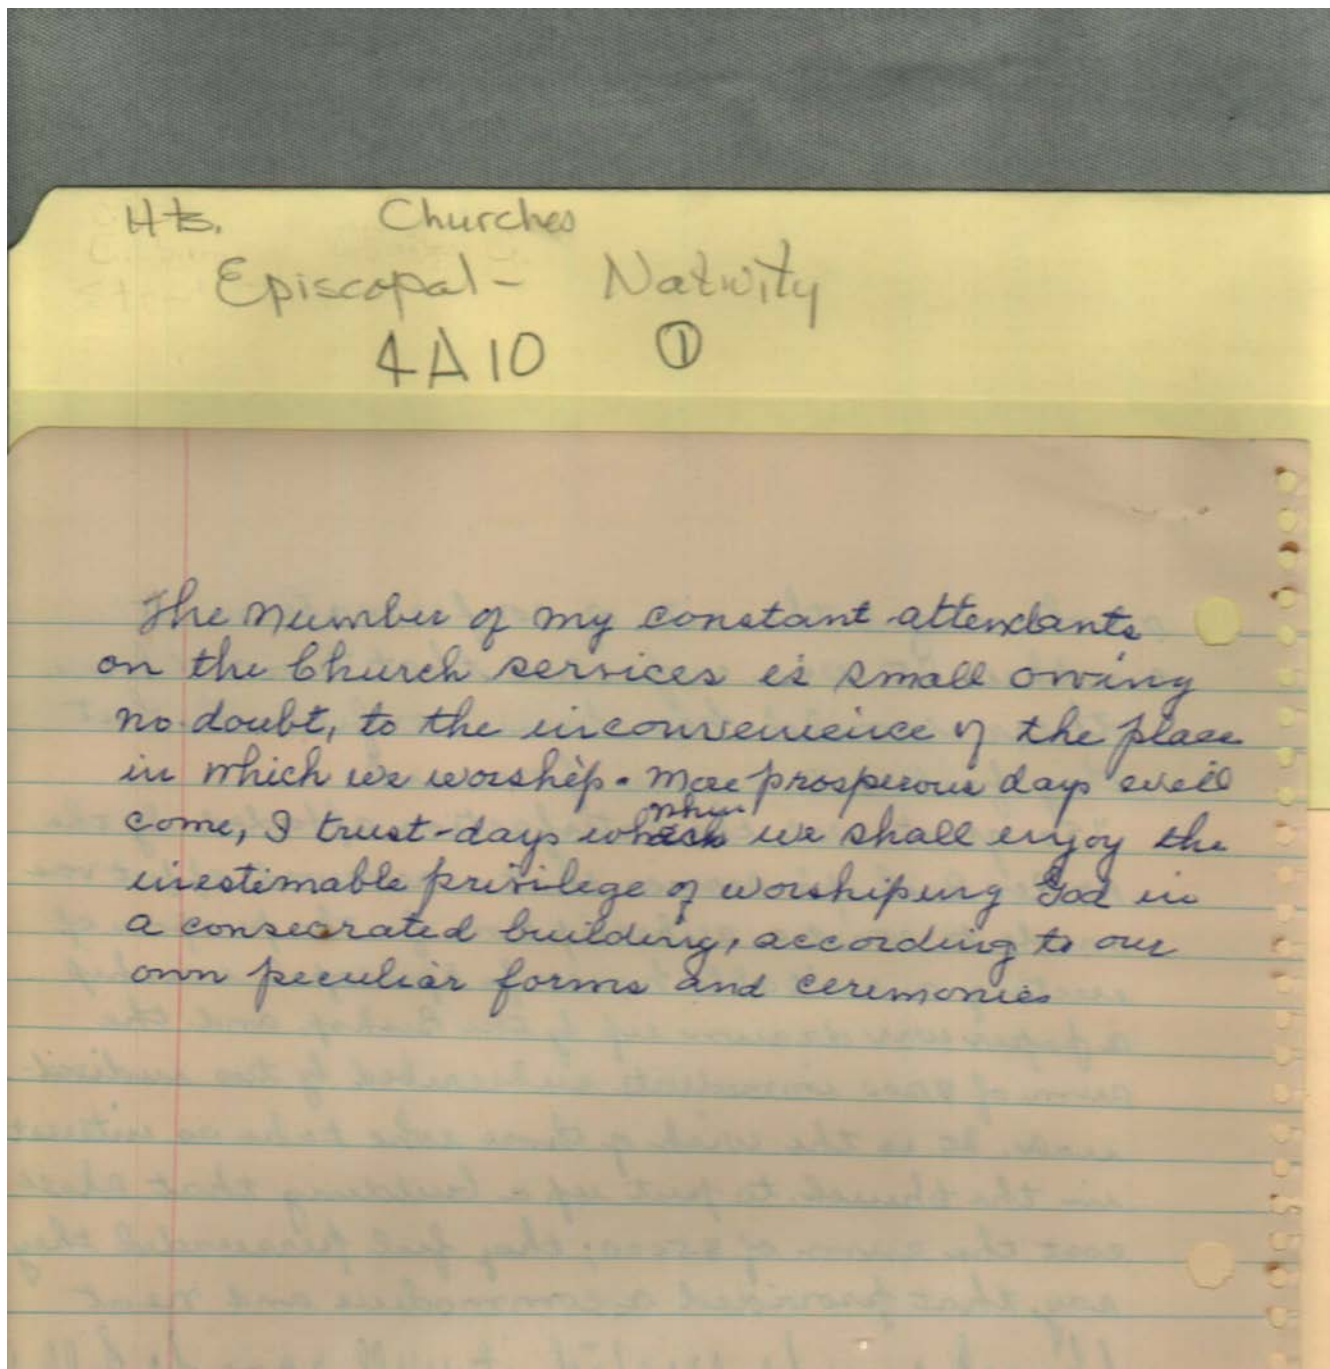 Hts. Churches
Episcopal - Nativity
4A10 ①
The number of my constant attendants
on the Church services is small owing
no doubt, to the inconvenience of the place
in which we worship. More prosperous days will
come, I trust - days when we shall enjoy the
inestimable privilege of worshiping God in
a consecrated building, according to our
own peculiar forms and ceremonies